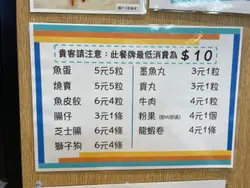 貴客請注意：此餐牌最低消費為 $10
魚蛋 5元5粒
燒賣 5元5粒
魚皮餃 6元4粒
腸仔 3元1條
芝士腸 6元4條
獅子狗 6元4條
墨魚丸 3元1粒
貢丸 3元1粒
牛肉 4元1粒
粉果 4元1個
龍蝦卷 4元1條